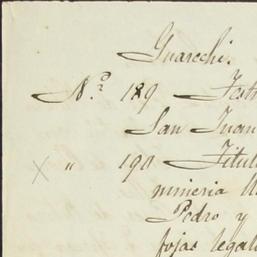 Guarochi.
N.º 189 Testi
San Juan
X " 190 Titul
mineria
Pedro y
fojas legal